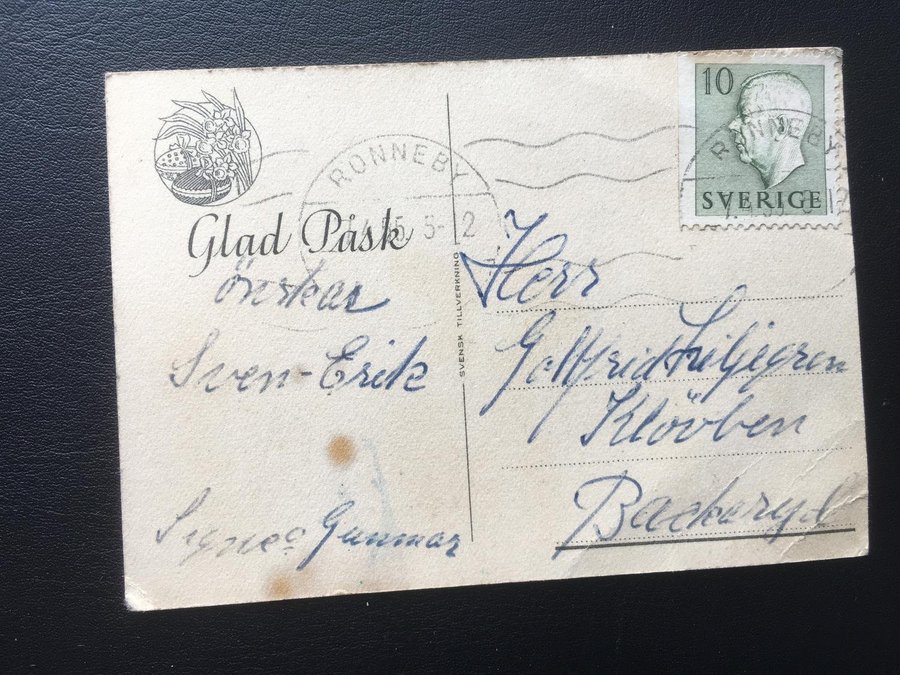 Glad Påsk
önskar
Sven-Erik
Signe o Gunnar
SVENSK TILLVERKNING
RONNEBY
10
SVERIGE
RONNEBY
Herr
Gottfrid Liljegren
Klövben
Backaryd